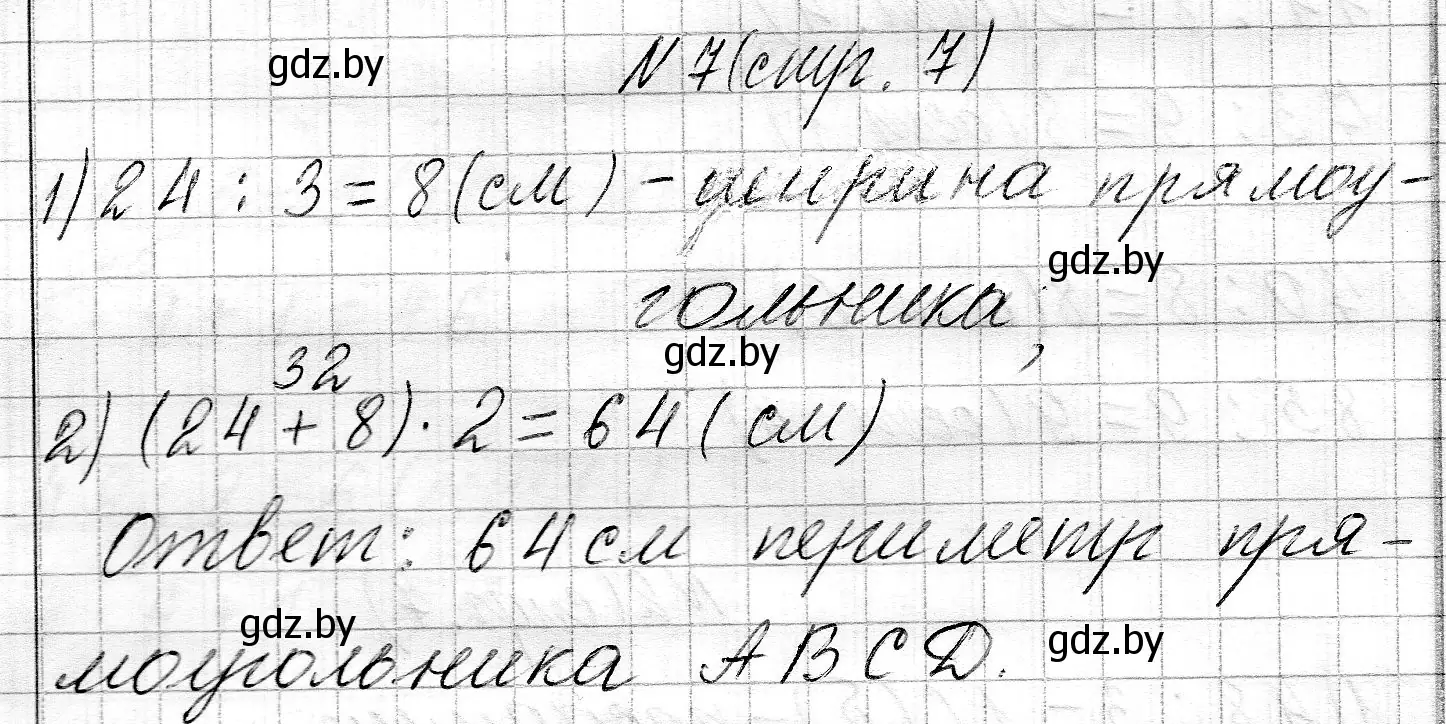 gdz.by
N 7 (стр. 7)
1) 24 : 3 = 8 (см) - ширина прямоу-
gdz.by
гольника;
gdz.by
32
2) (24 + 8) · 2 = 64 (см)
Ответ: 64 см периметр пря-
gdz.by
gdz.by
моугольника ABCD.